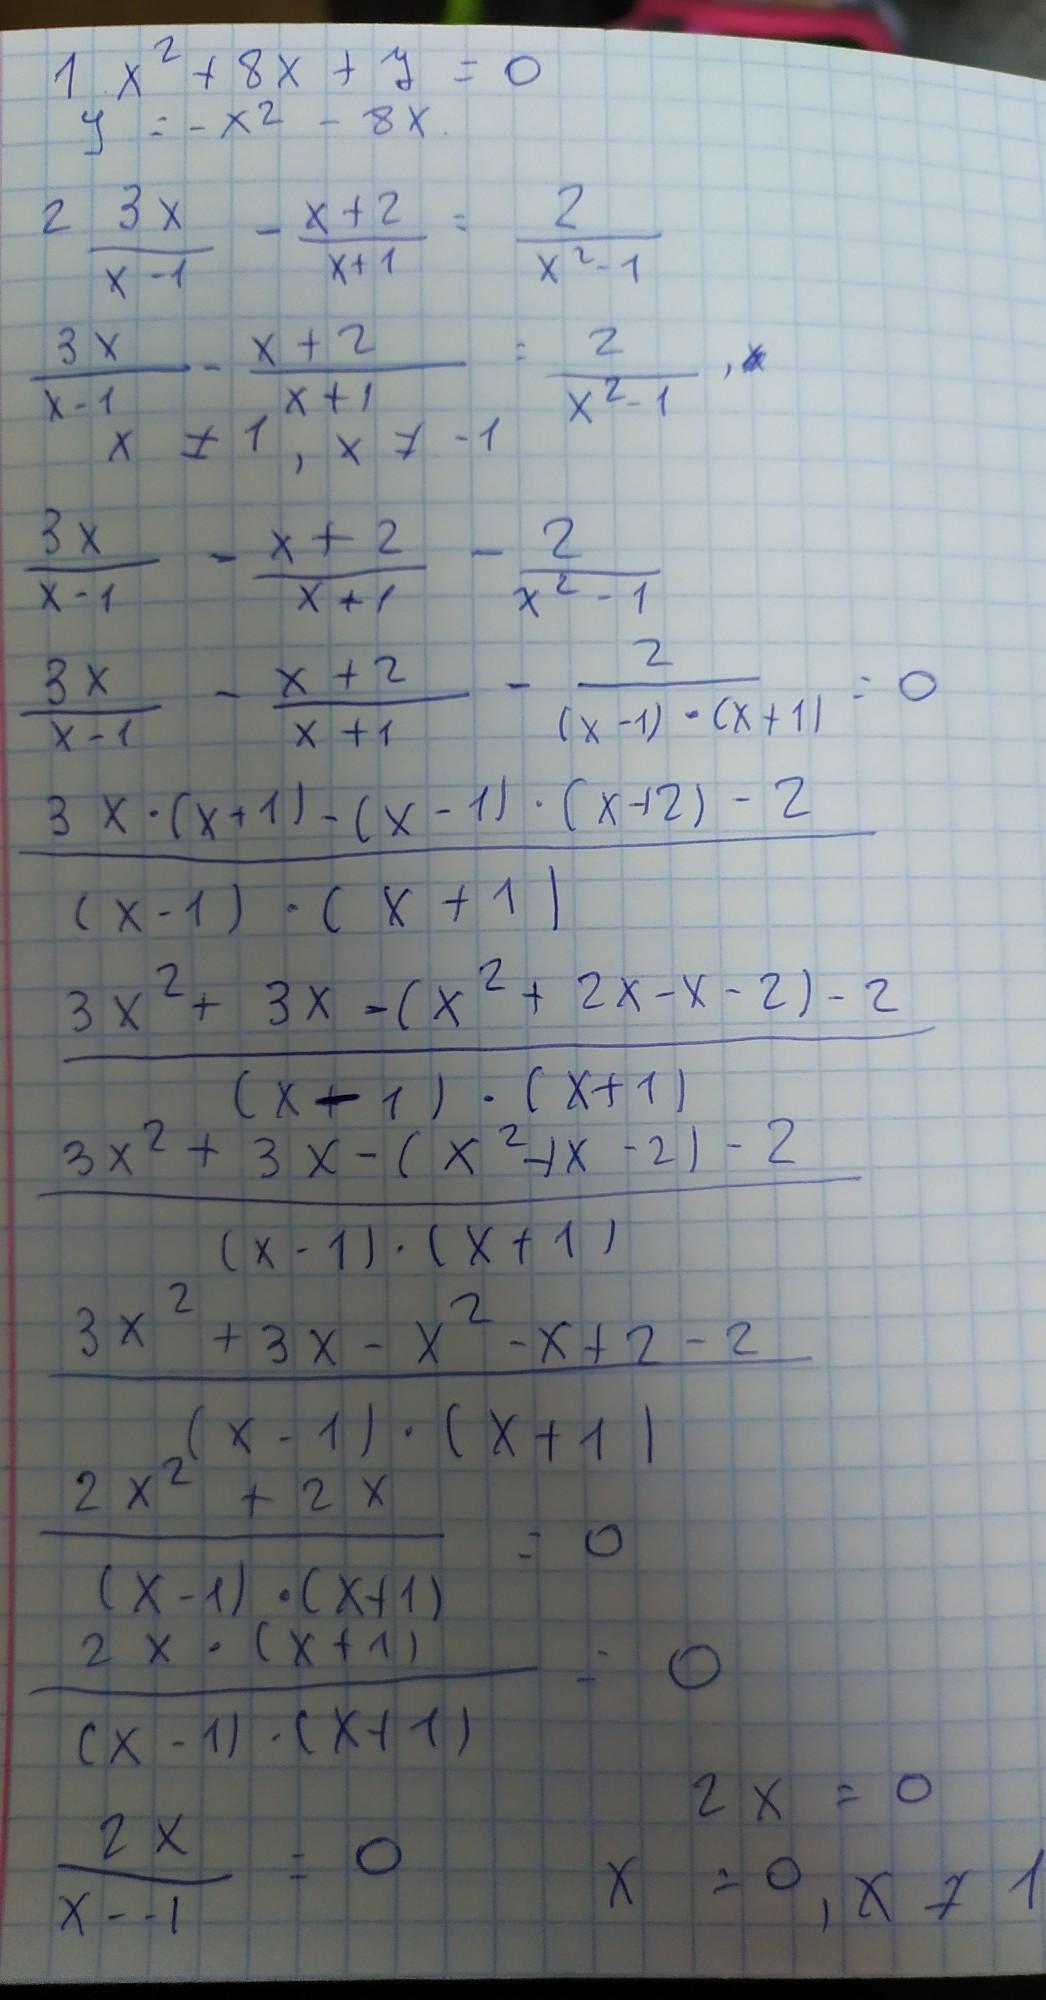 1 x² + 8x + y = 0
y = -x² - 8x.
2 3x/(x-1) - (x+2)/(x+1) = 2/(x²-1)
3x/(x-1) - (x+2)/(x+1) = 2/(x²-1),
x ≠ 1, x ≠ -1
3x/(x-1) - (x+2)/(x+1) - 2/(x²-1)
3x/(x-1) - (x+2)/(x+1) - 2/((x-1)·(x+1)) = 0
(3x·(x+1)-(x-1)·(x+2)-2)/((x-1)·(x+1))
(3x²+3x-(x²+2x-x-2)-2)/((x-1)·(x+1))
(3x²+3x-(x²+x-2)-2)/((x-1)·(x+1))
(3x²+3x-x²-x+2-2)/((x-1)·(x+1))
(2x²+2x)/((x-1)·(x+1)) = 0
(2x·(x+1))/((x-1)·(x+1)) = 0
2x/(x-1) = 0
2x = 0
x = 0, x ≠ 1